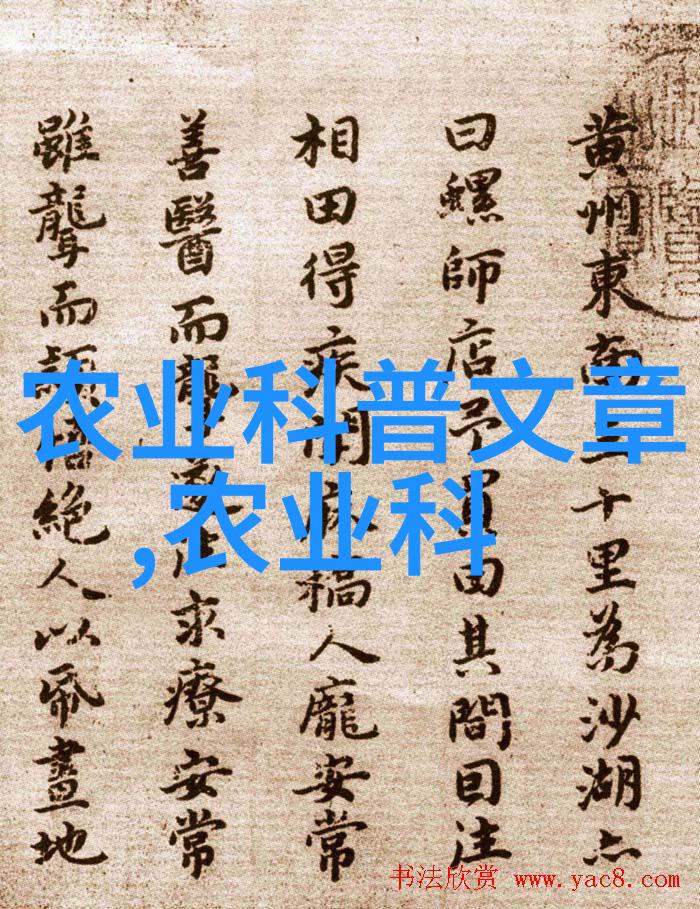 黄州東南三十里為沙湖亦
曰螺師店予買田其間因往
相田得疾聞麻橋人龐安常
善醫而聾遂往求療安常
雖聾而穎悟絕人以紙畫地
农业科普文章
,农业科
书法欣赏 www.yac8.com